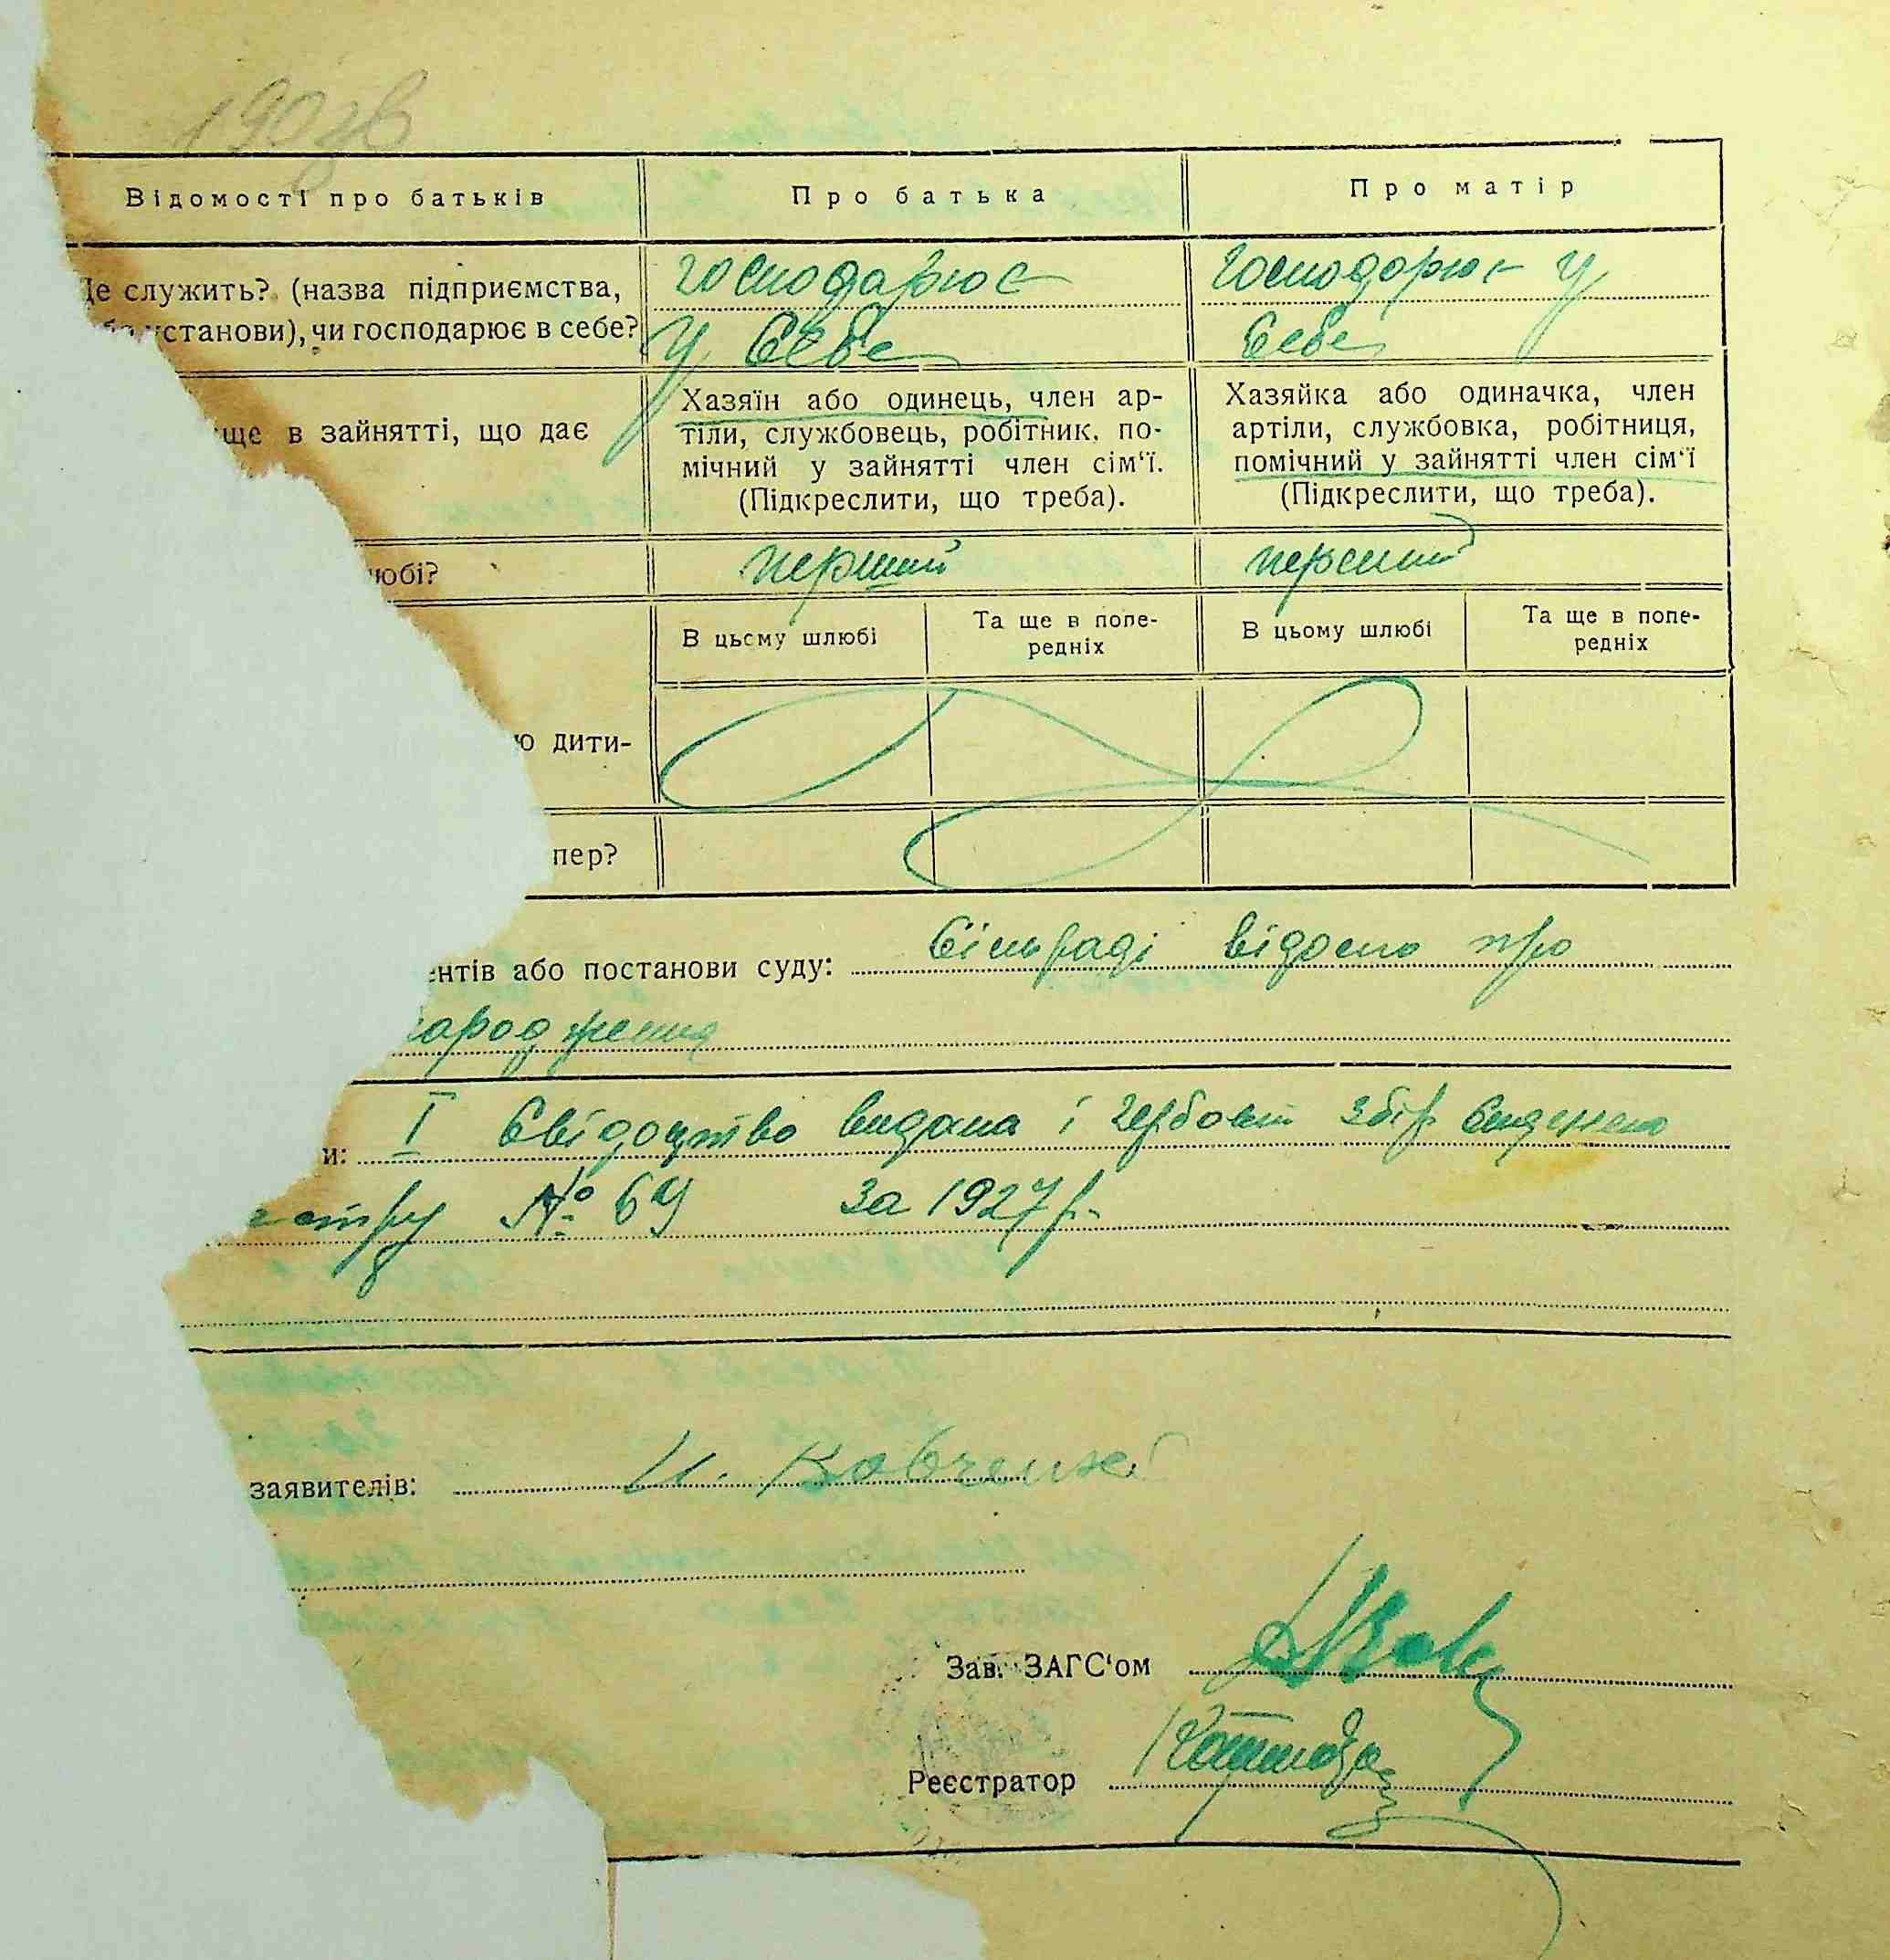 Відомості про батьків
Про батька
Про матір
Де служить? (назва підприємства,
установи), чи господарює в себе?
господарює
у себе
господарює у
себе
ще в зайнятті, що дає
Хазяїн або одинець, член ар-
тіли, службовець, робітник, по-
мічний у зайнятті член сім'ї.
(Підкреслити, що треба).
Хазяйка або одиначка, член
артіли, службовка, робітниця,
помічний у зайнятті член сім'ї
(Підкреслити, що треба).
юбі?
перший
перший
В цьому шлюбі
Та ще в попе-
редніх
В цьому шлюбі
Та ще в попе-
редніх
ю дити-
пер?
ентів або постанови суду: Сільраді відомо про
народження
и: І Свідоцтво видана і гербовий збір
естру № 69 за 1927 р.
заявителів:
Зав. ЗАГС'ом
Реєстратор